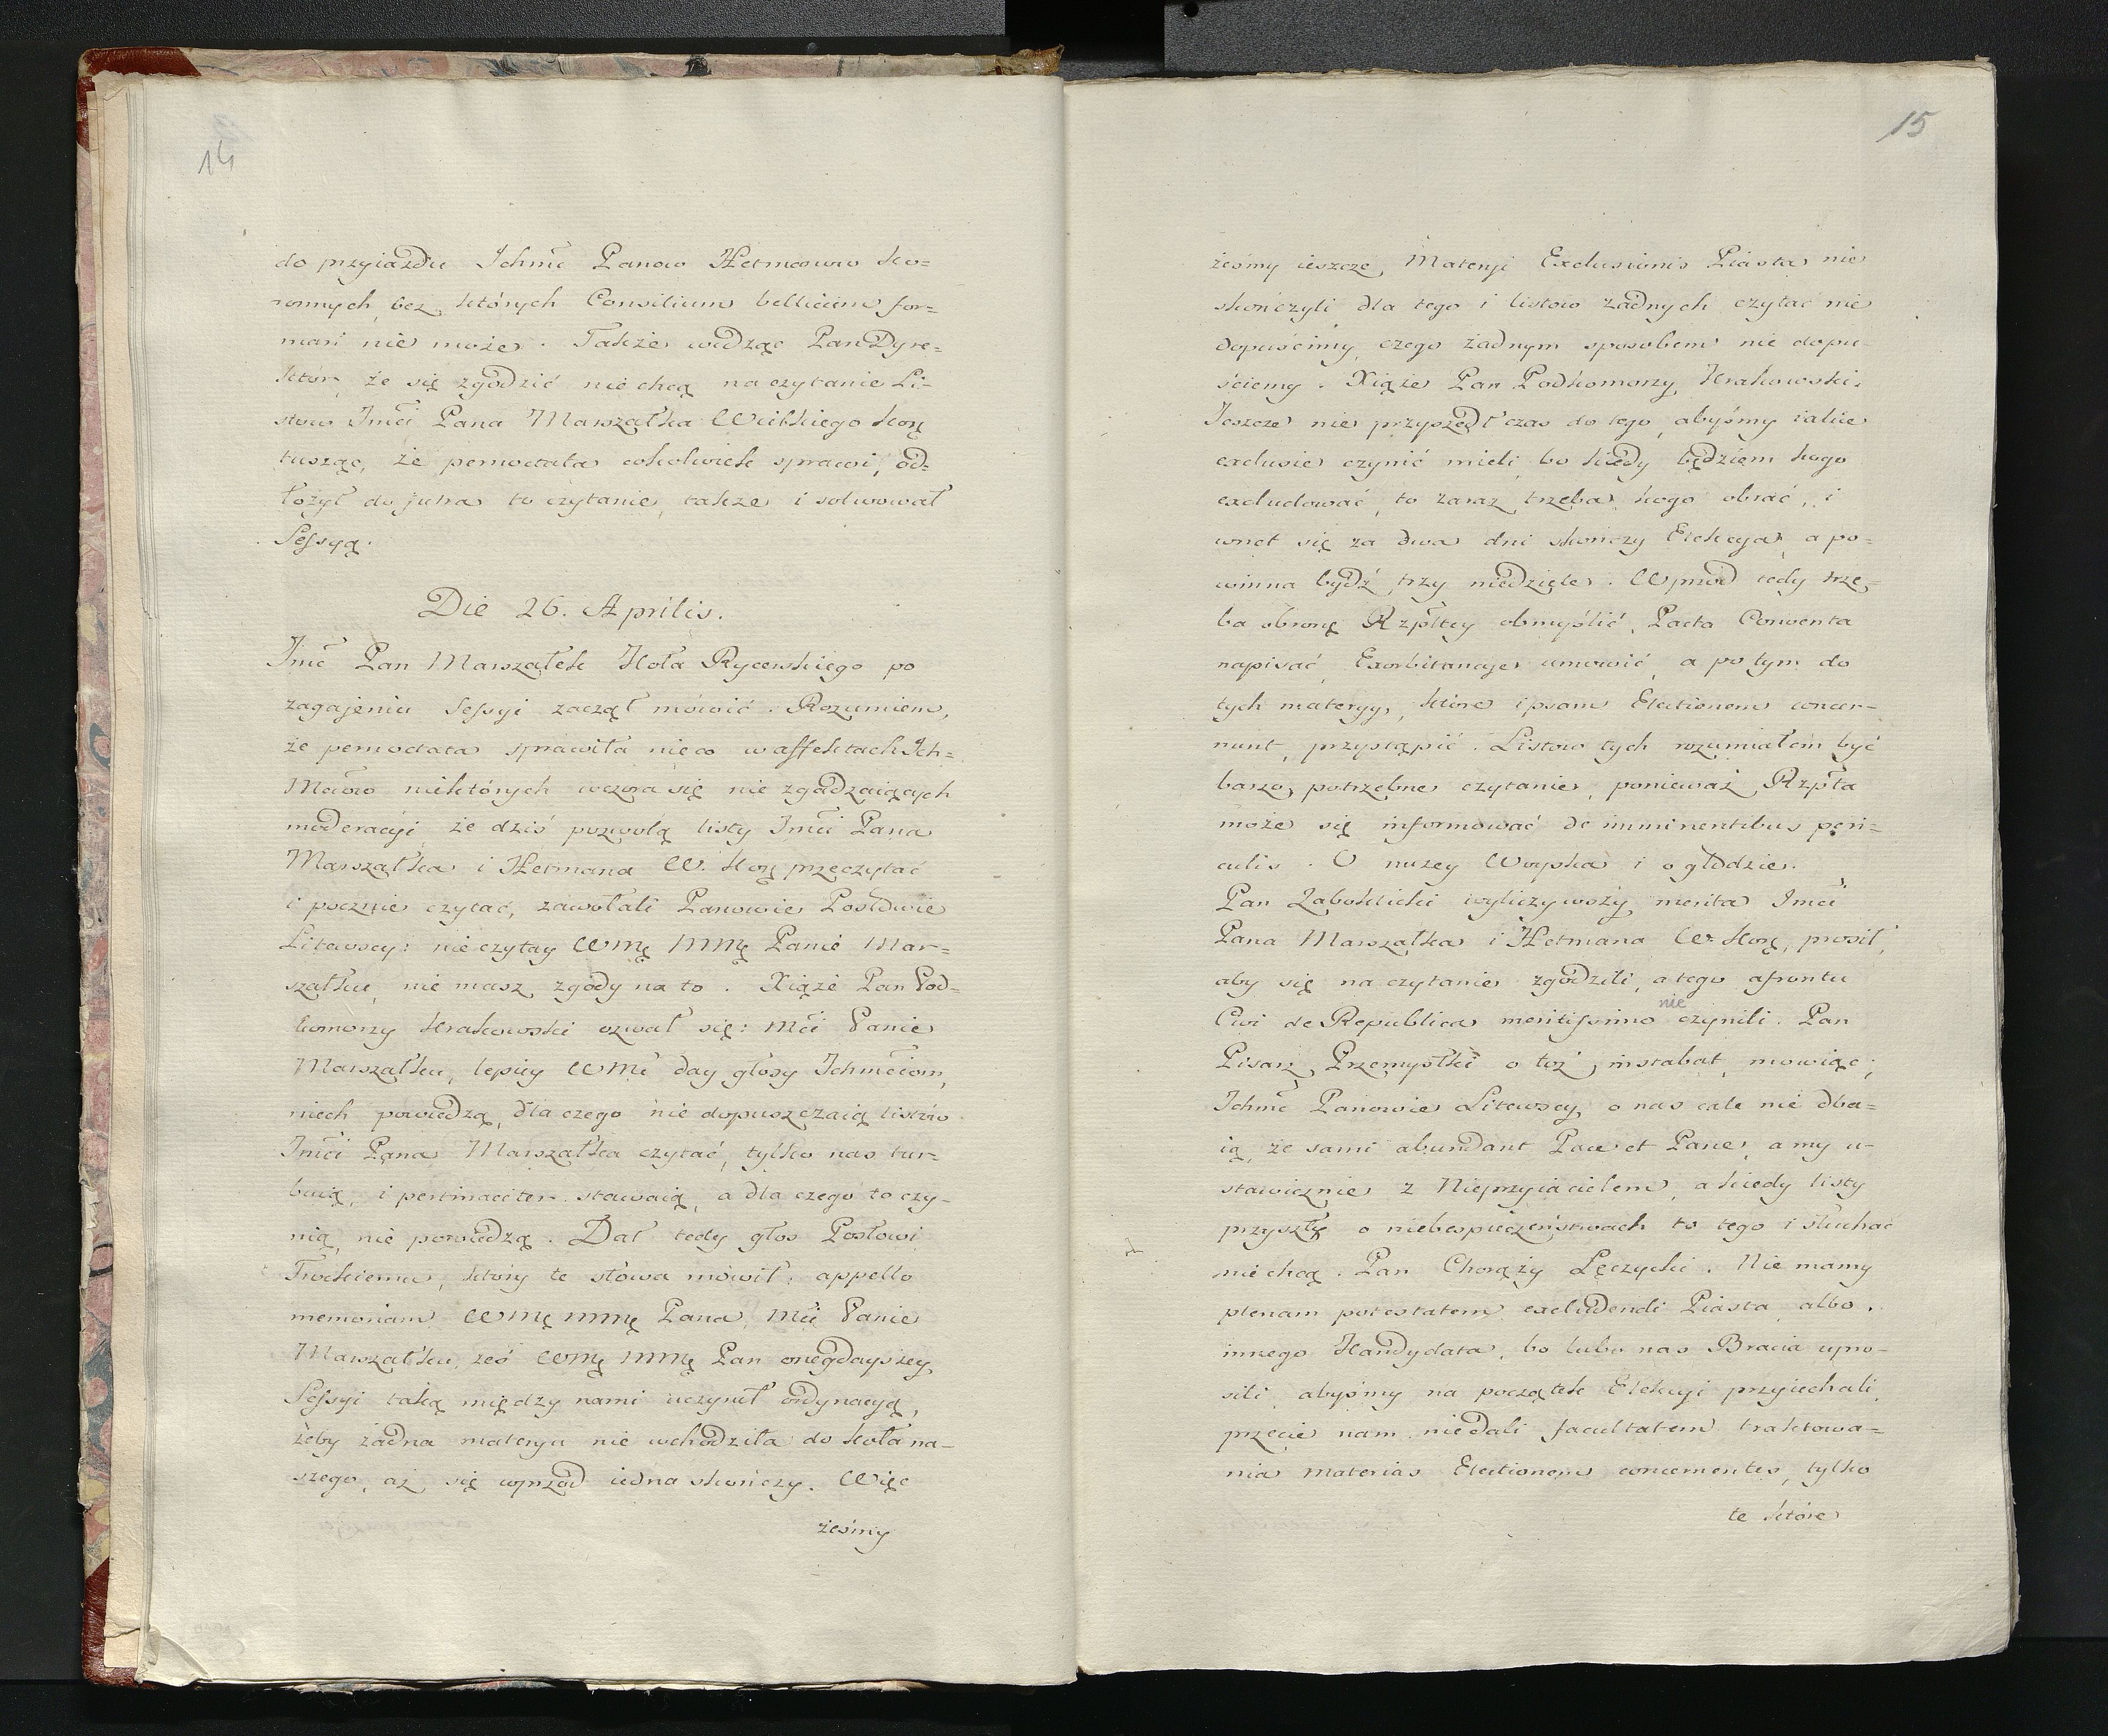 14
do przyiazdu Ichmć Panow Hetmanow Ko=
ronnych, bez których Consilium bellicum for=
mari nie może. Takze widząc Pan Dyre=
ktor, że się zgodzić nie chcą na czytanie Li=
stow Imći Pana Marszałka Wielkiego Kor
tusząc, że pernoctata cokolwiek sprawi, od=
łożył do jutra to czytanie, takze i solwował
Sessyą.
Die 26. Aprilis.
Imć Pan Marszałek Koła Rycerskiego po
zagajeniu Sessyi zaczął mówić. Rozumiem,
że pernoctata sprawiła nieco w affektach Ich=
Mćiow niektórych wczora się nie zgadzaiących
moderacyi, że dziś pozwolą listy Imći Pana
Marszałka i Hetmana W. Kor przeczytać
i pocznie czytać, zawołali Panowie Posłowie
Litewscy: nie czytay WMę MMę Panie Mar=
szałku, nie masz zgody na to. Xiąże Pan Pod=
komorzy Krakowski ozwał się: Mći Panie
Marszałku, lepiey WMć day głosy Ichmćiom,
niech powiedzą, dla czego nie dopuszczaią listów
Imći Pana Marszałka czytać, tylko nas tur=
buią, i pertinaciter stawaią, a dla czego to czy=
nią, nie powiedzą. Dał tedy głos Posłowi
Trockiemu, który te słowa mówił: appello
memoriam WMę MMę Pana, Mći Panie
Marszałku, żeś WMę MMę Pan onegdayszey
Sessyi taką między nami uczynił ordynacyą,
żeby żadna materya nie wchodziła do koła na=
szego, aż się wprzód iedna skończy. Więc
żeśmy
15
żeśmy ieszcze Materyi Exclusionis Piasta nie
skończyli dla tego i listow żadnych czytać nie
dopuścimy, czego żadnym sposobem nie dopu=
ściemy. Xiąże Pan Podkomorzy Krakowski.
Ieszcze nie przyszedł czas do tego, abyśmy iakie
exclusie czynić mieli, bo kiedy będziem kogo
excludować, to zaraz trzeba kogo obrać, i
wnet się za dwa dni skończy Elekcya, a po=
winna bydź trzy niedziele. Wprzód tedy trze=
ba obronę Rzpltey obmyślić, Pacta Conventa
napisać, Exorbitancye umowić, a po tym do
tych materyy, które ipsam Electionem concer=
nunt, przystąpić. Listow tych rozumiałem być
barzo potrzebne czytanie, ponieważ Rzpłta
może się informować de imminentibus peri=
culis. O nuzey Woyska i o głodzie.
Pan Zaboklicki wyliczywszy merita Imći
Pana Marszałka i Hetmana W. Kor, prosił,
aby się na czytanie zgodzili, a tego afrontu
Civi de Republica meritissimo nie czynili. Pan
Pisarz Przemyski o toż instabat, mowiąc;
Ichmć Panowie Litewscy o nas cale nie dba=
ią, że sami abundant Pace et Pane, a my u=
stawicznie z Nieprzyiacielem, a kiedy listy
przyszły o niebespieczeństwach to tego i słuchać
nie chcą. Pan Chorąży Łęczycki. Nie mamy
plenam potestatem excludendi Piasta albo
innego Kandydata, bo lubo nas Bracia upro=
sili abyśmy na początek Elekcyi przyiechali,
przecie nam nie dali facultatem traktowa=
nia materias Electionem concernentes, tylko
te które